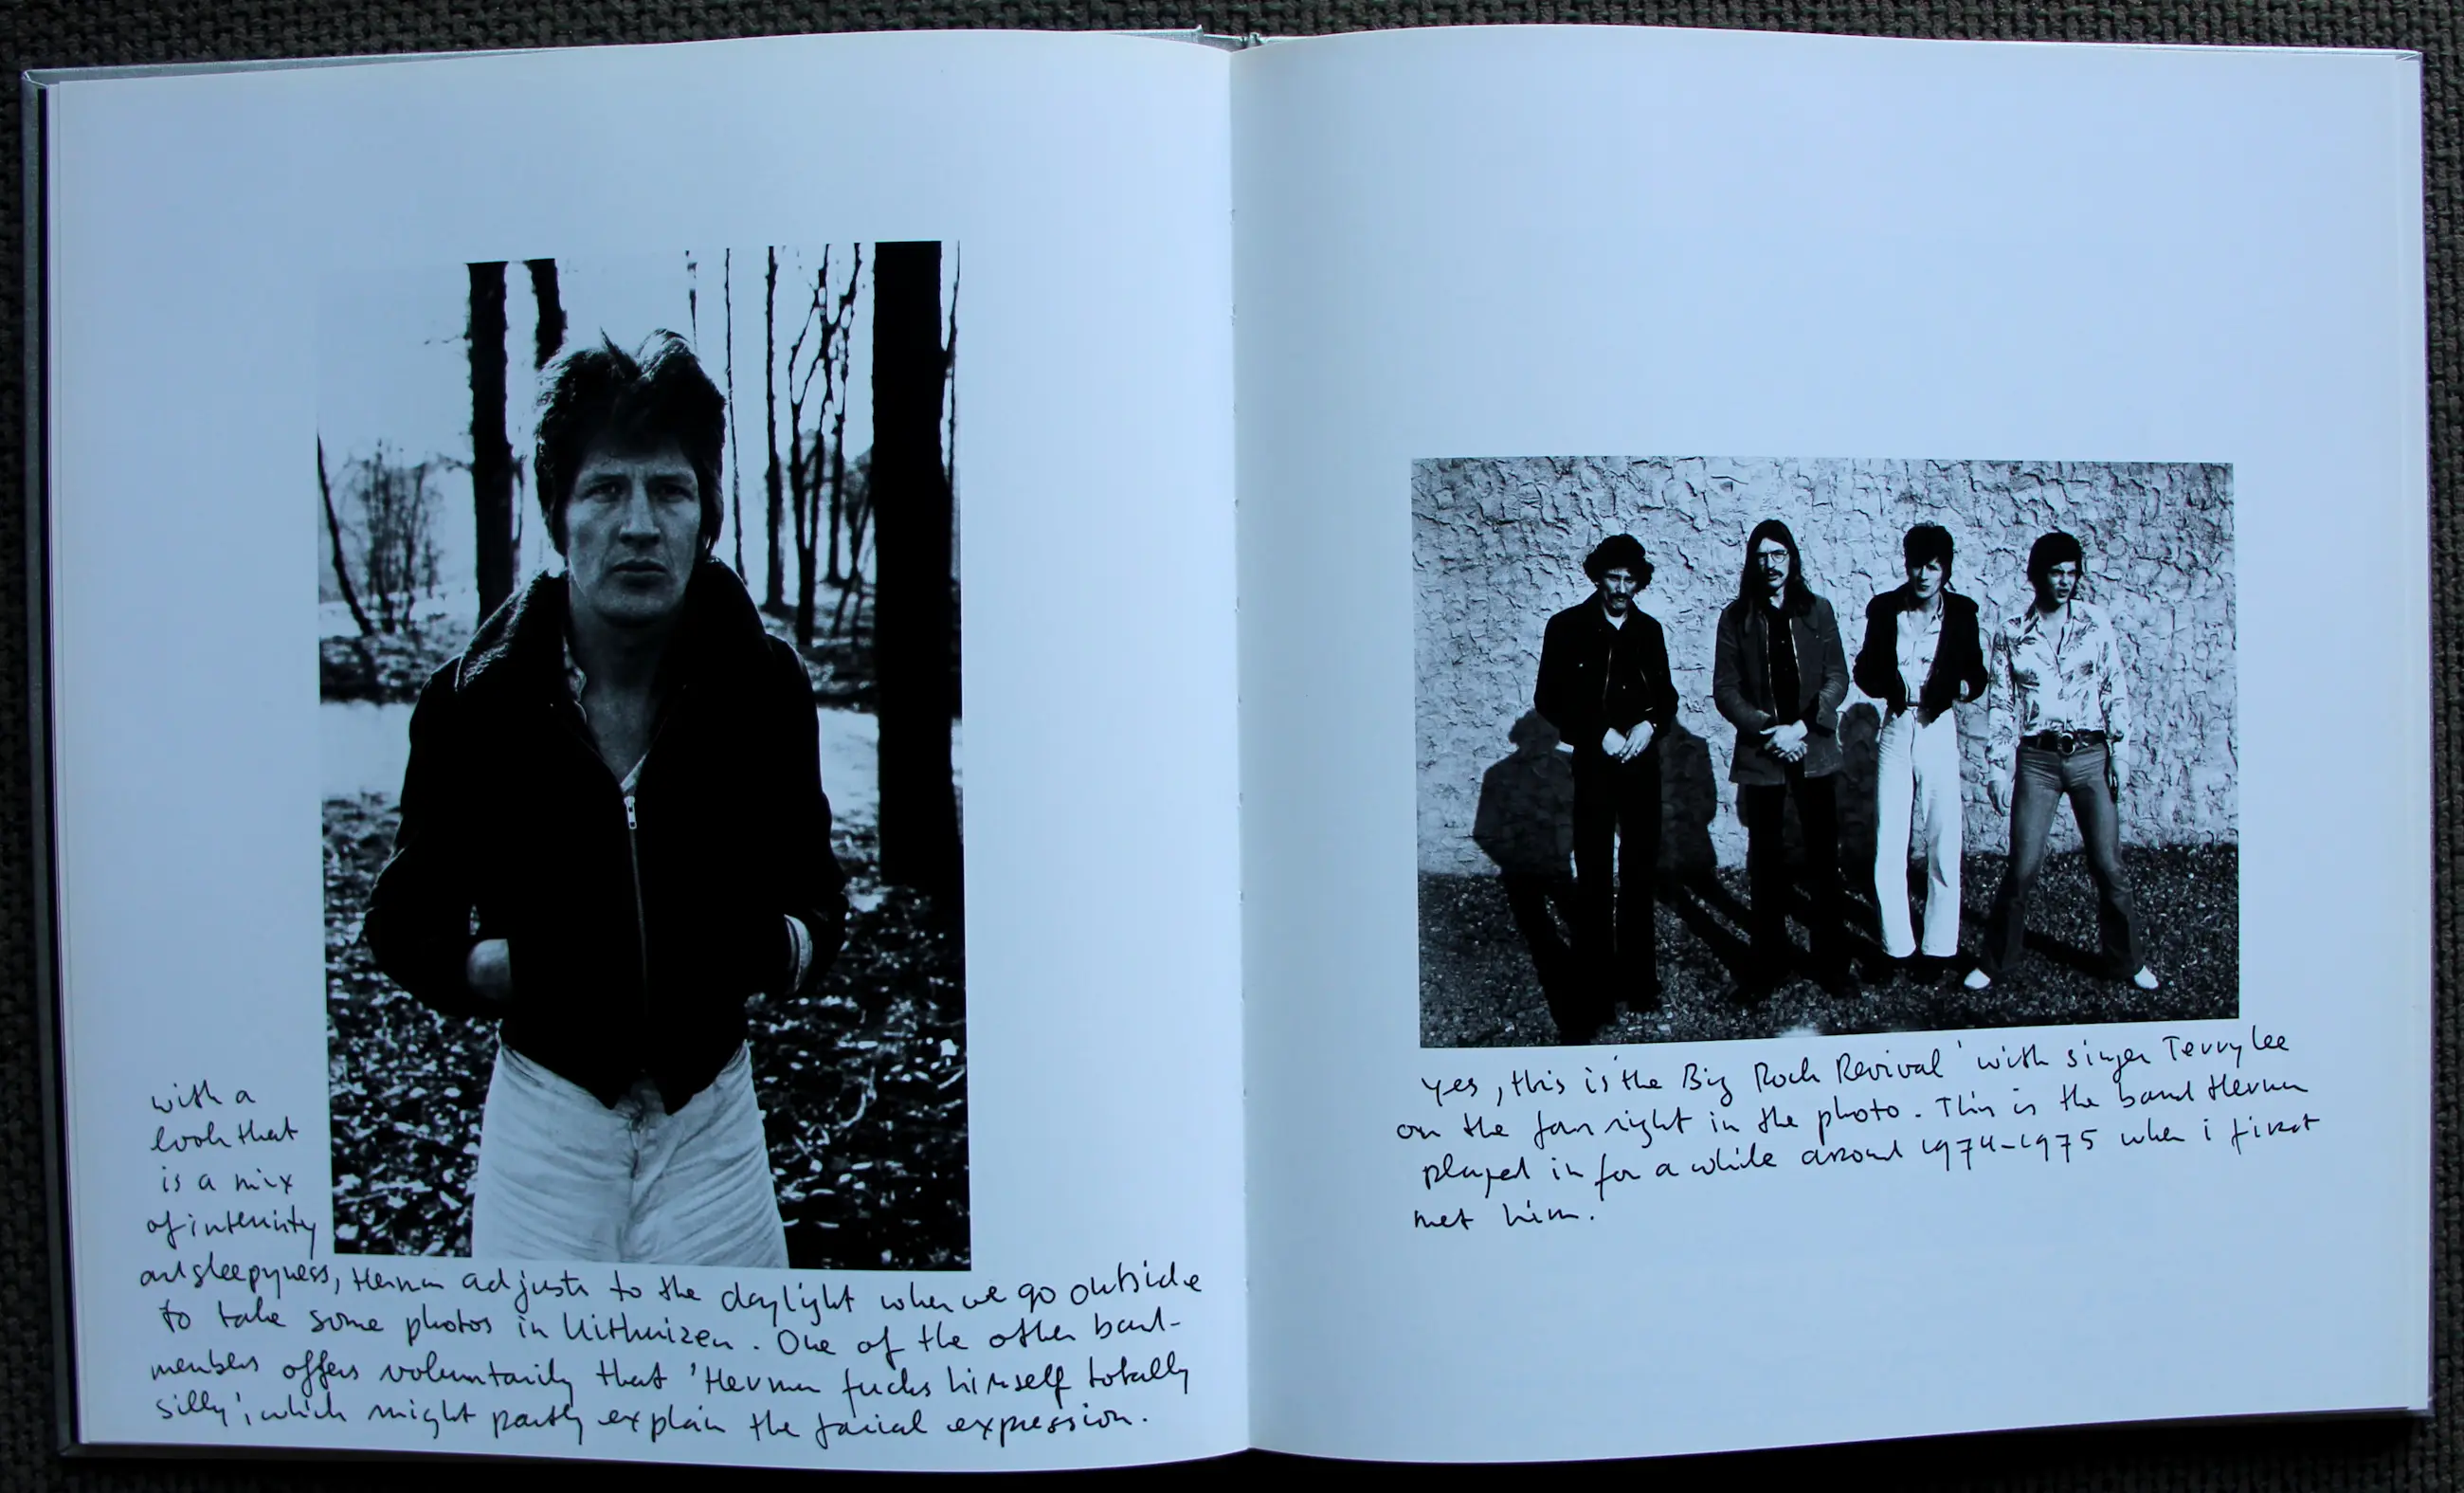 with a
look that
is a mix
of intensity
and sleepyness, Herman adjusts to the daylight when we go outside
to take some photos in Uithuizen. One of the other band-
members offers voluntarily that 'Herman fucks himself totally
silly', which might partly explain the facial expression.
Yes, this is 'the Big Rock Revival' with singer Terry Lee
on the far right in the photo. This is the band Herman
played in for a while around 1974-1975 when i first
met him.